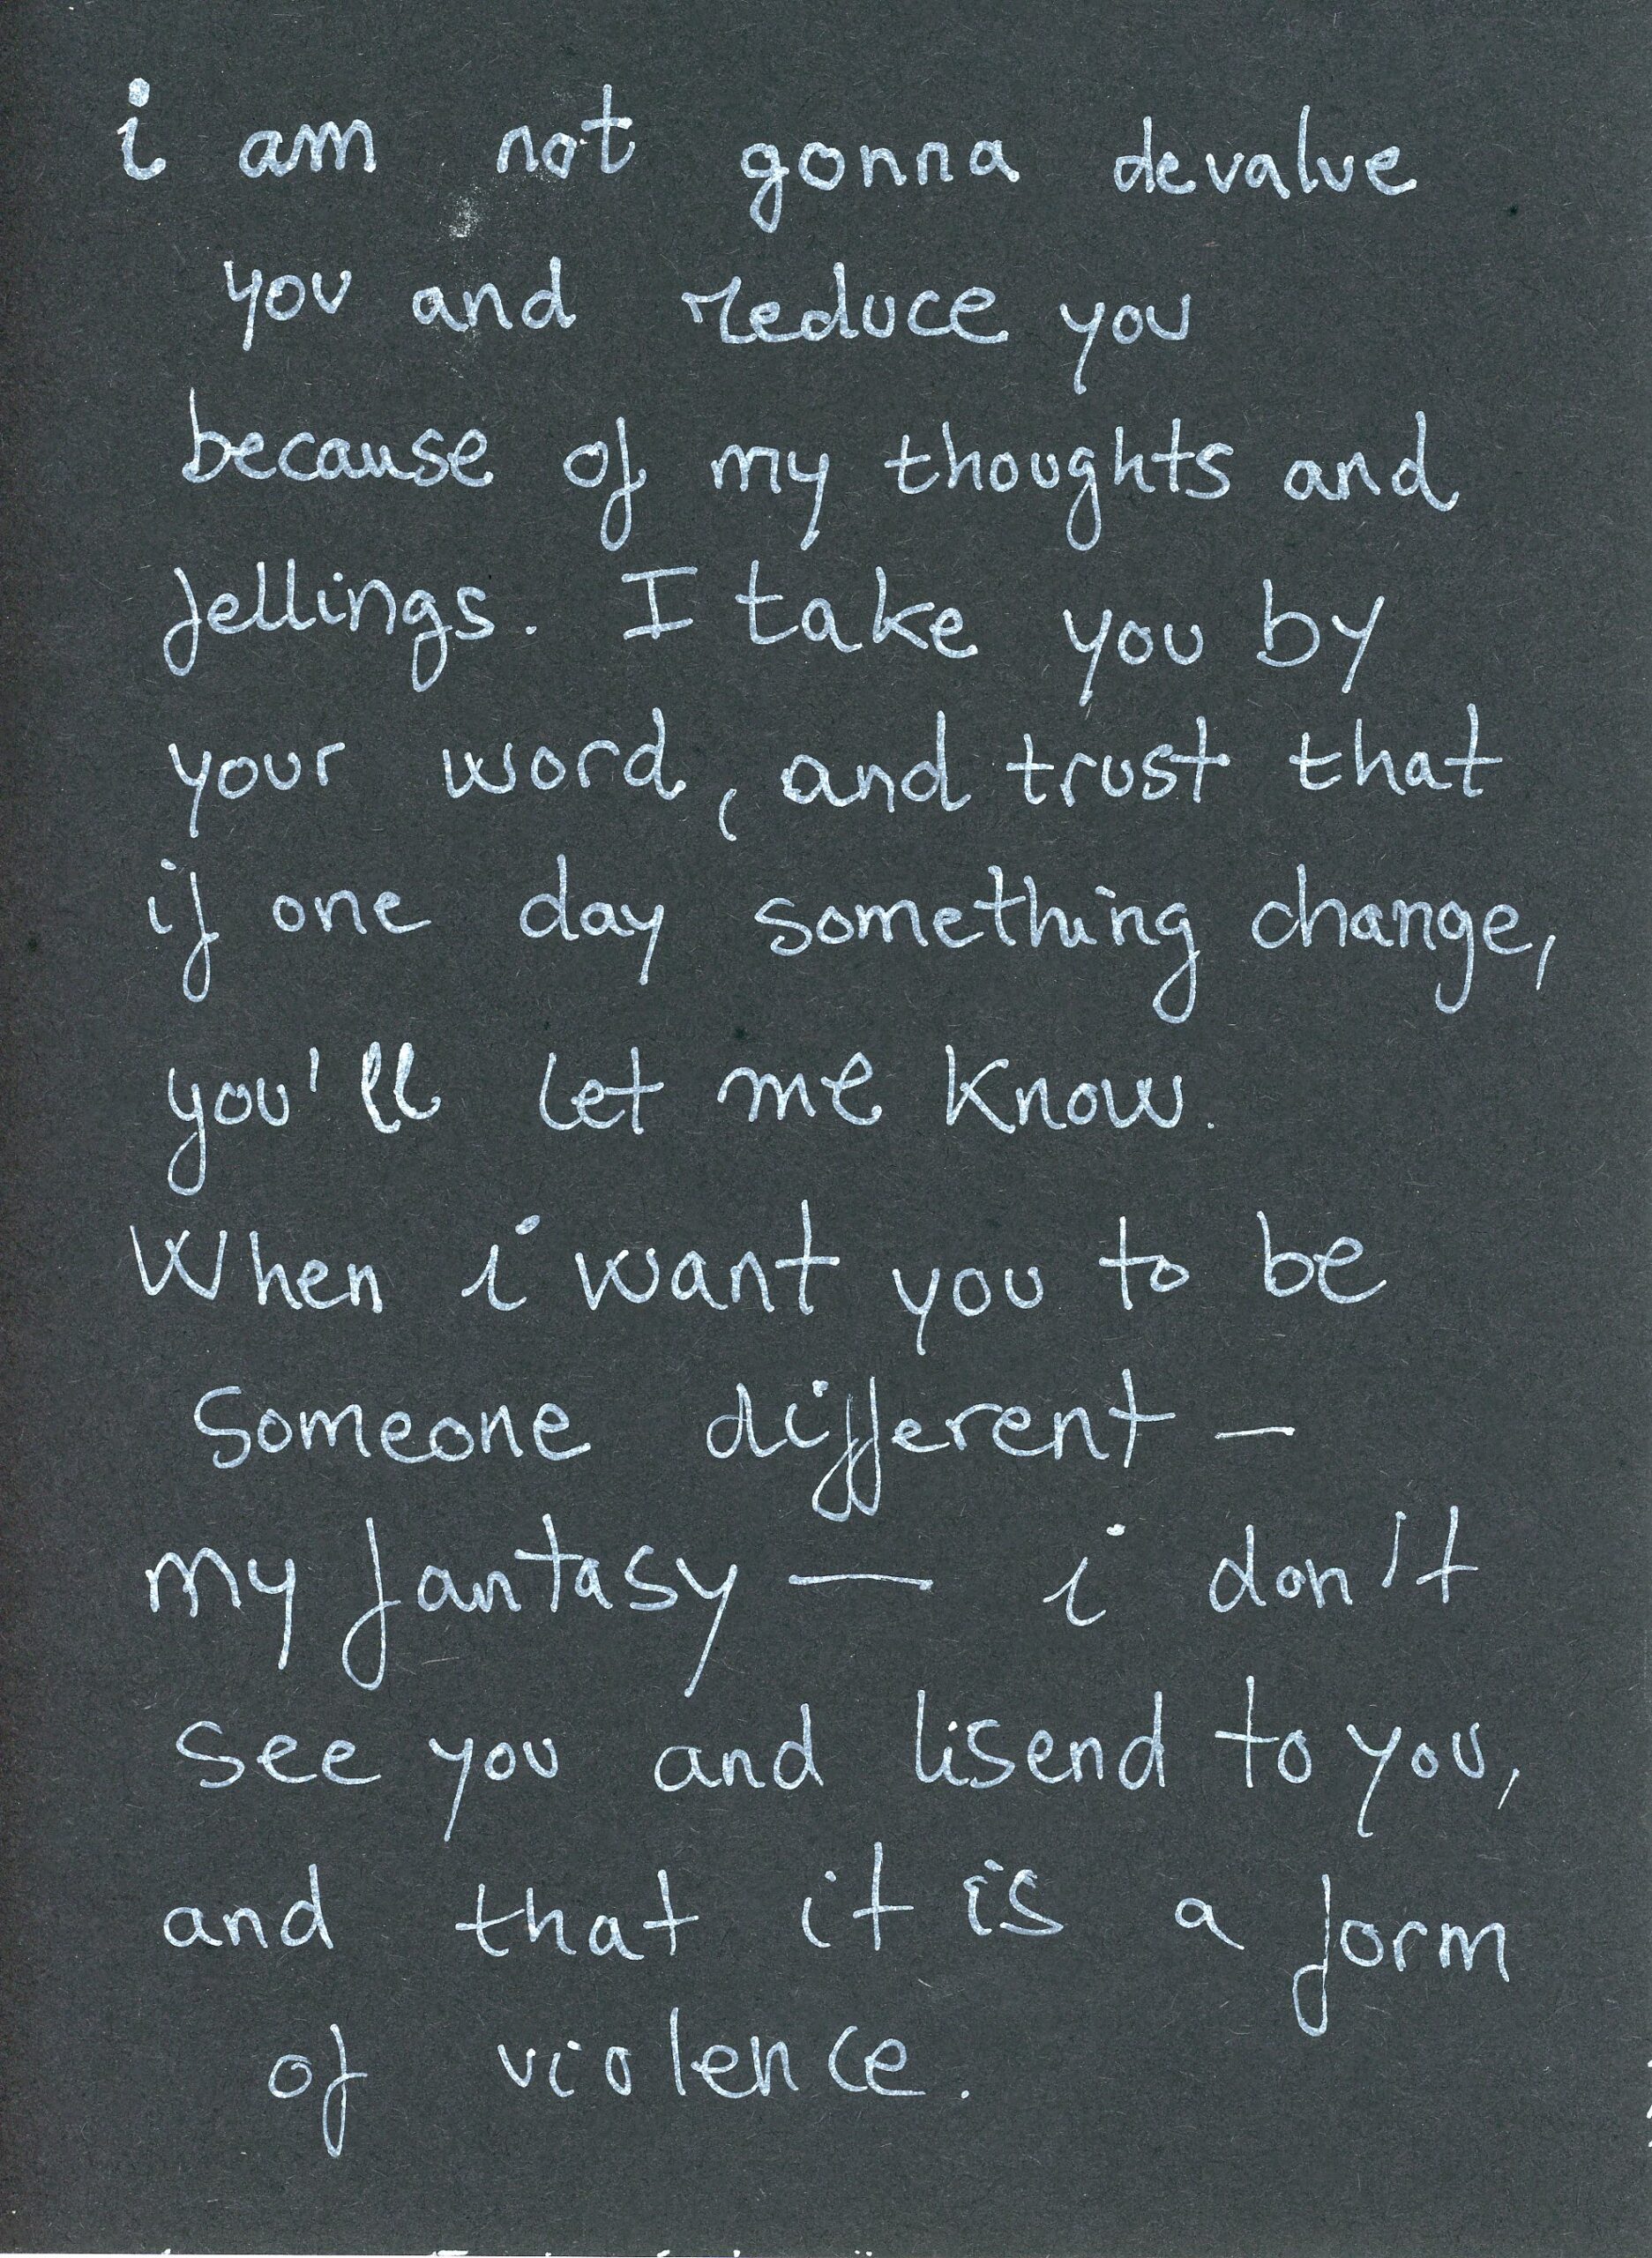 i am not gonna devalue
you and reduce you
because of my thoughts and
fellings. I take you by
your word, and trust that
if one day something change,
you'll let me know.
When i want you to be
someone different —
my fantasy — i don't
see you and lisend to you,
and that it is a form
of violence.